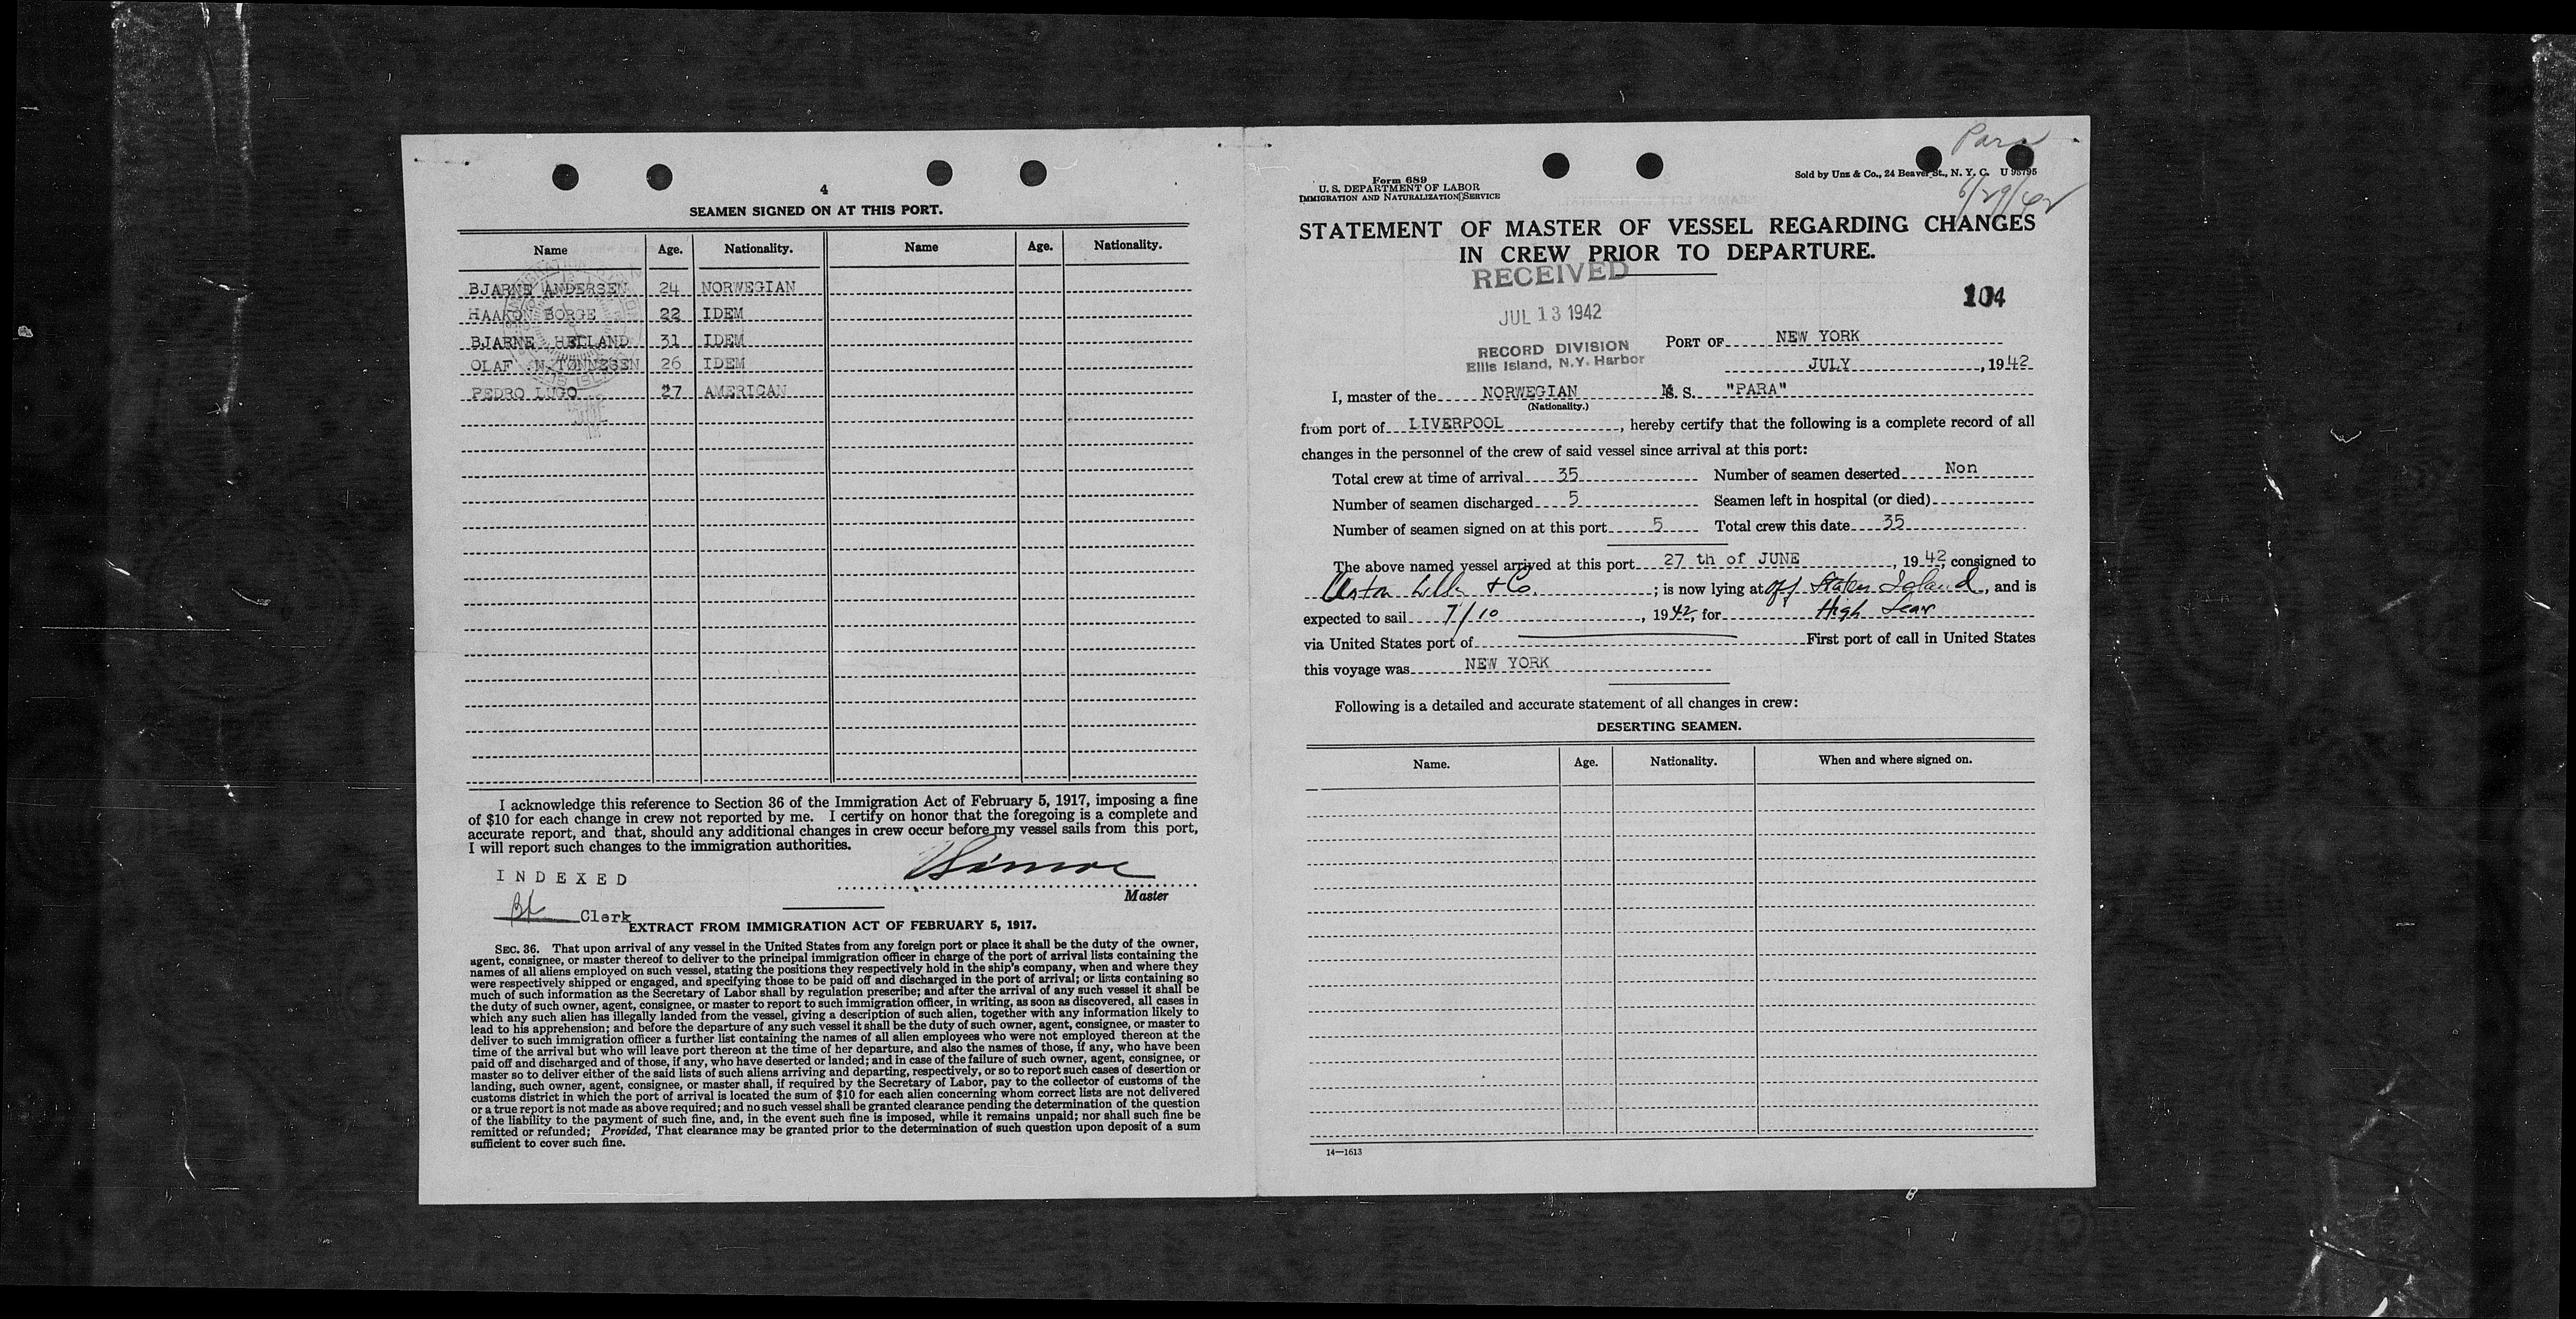 4
SEAMEN SIGNED ON AT THIS PORT.
Name Age. Nationality. Name Age. Nationality.
BJARNE ANDERSEN 24 NORWEGIAN
HAAKON BORGE 22 IDEM
BJARNE HELLAND 31 IDEM
OLAF N. TØNNESEN 26 IDEM
PEDRO LUGO 27 AMERICAN
I acknowledge this reference to Section 36 of the Immigration Act of February 5, 1917, imposing a fine
of $10 for each change in crew not reported by me. I certify on honor that the foregoing is a complete and
accurate report, and that, should any additional changes in crew occur before my vessel sails from this port,
I will report such changes to the immigration authorities.
INDEXED
Master
Clerk
EXTRACT FROM IMMIGRATION ACT OF FEBRUARY 5, 1917.
SEC. 36. That upon arrival of any vessel in the United States from any foreign port or place it shall be the duty of the owner,
agent, consignee, or master thereof to deliver to the principal immigration officer in charge of the port of arrival lists containing the
names of all aliens employed on such vessel, stating the positions they respectively hold in the ship's company, when and where they
were respectively shipped or engaged, and specifying those to be paid off and discharged in the port of arrival; or lists containing so
much of such information as the Secretary of Labor shall by regulation prescribe; and after the arrival of any such vessel it shall be
the duty of such owner, agent, consignee, or master to report to such immigration officer, in writing, as soon as discovered, all cases in
which any such alien has illegally landed from the vessel, giving a description of such alien, together with any information likely to
lead to his apprehension; and before the departure of any such vessel it shall be the duty of such owner, agent, consignee, or master to
deliver to such immigration officer a further list containing the names of all alien employees who were not employed thereon at the
time of the arrival but who will leave port thereon at the time of her departure, and also the names of those, if any, who have been
paid off and discharged and of those, if any, who have deserted or landed; and in case of the failure of such owner, agent, consignee, or
master so to deliver either of the said lists of such aliens arriving and departing, respectively, or so to report such cases of desertion or
landing, such owner, agent, consignee, or master shall, if required by the Secretary of Labor, pay to the collector of customs of the
customs district in which the port of arrival is located the sum of $10 for each alien concerning whom correct lists are not delivered
or a true report is not made as above required; and no such vessel shall be granted clearance pending the determination of the question
of the liability to the payment of such fine, and, in the event such fine is imposed, while it remains unpaid; nor shall such fine be
remitted or refunded; Provided, That clearance may be granted prior to the determination of such question upon deposit of a sum
sufficient to cover such fine.
Para
6/29/42
Form 689
U. S. DEPARTMENT OF LABOR
IMMIGRATION AND NATURALIZATION SERVICE
Sold by Unz & Co., 24 Beaver St., N. Y. C. U 95795
STATEMENT OF MASTER OF VESSEL REGARDING CHANGES
IN CREW PRIOR TO DEPARTURE.
RECEIVED
JUL 13 1942
RECORD DIVISION
Ellis Island, N.Y. Harbor
104
PORT OF NEW YORK
JULY, 1942
I, master of the NORWEGIAN M. S. "PARA"
(Nationality.)
from port of LIVERPOOL, hereby certify that the following is a complete record of all
changes in the personnel of the crew of said vessel since arrival at this port:
Total crew at time of arrival 35 Number of seamen deserted Non
Number of seamen discharged 5 Seamen left in hospital (or died)
Number of seamen signed on at this port 5 Total crew this date 35
The above named vessel arrived at this port 27 th of JUNE, 1942, consigned to
& Co.; is now lying at off Staten Island, and is
expected to sail 7/10, 1942, for High Seas
via United States port of First port of call in United States
this voyage was NEW YORK
Following is a detailed and accurate statement of all changes in crew:
DESERTING SEAMEN.
Name. Age. Nationality. When and where signed on.
14—1613